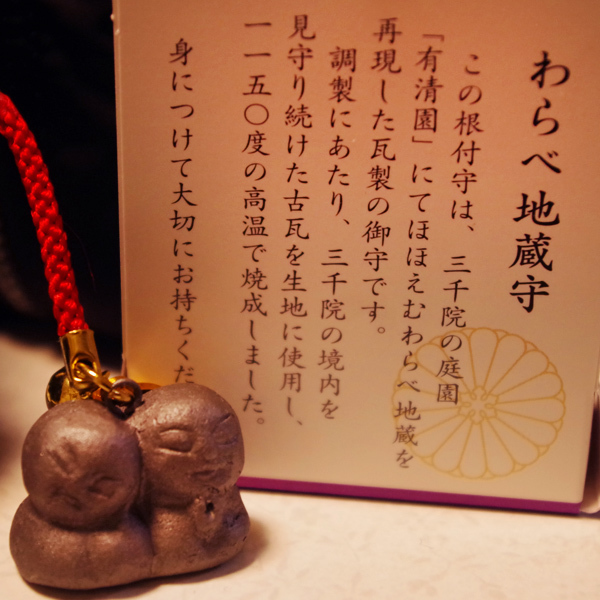 わらべ地蔵守
この根付守は、三千院の庭園
「有清園」にてほほえむわらべ地蔵を
再現した瓦製の御守です。
調製にあたり、三千院の境内を
見守り続けた古瓦を生地に使用し、
一一五〇度の高温で焼成しました。
身につけて大切にお持ちくだ